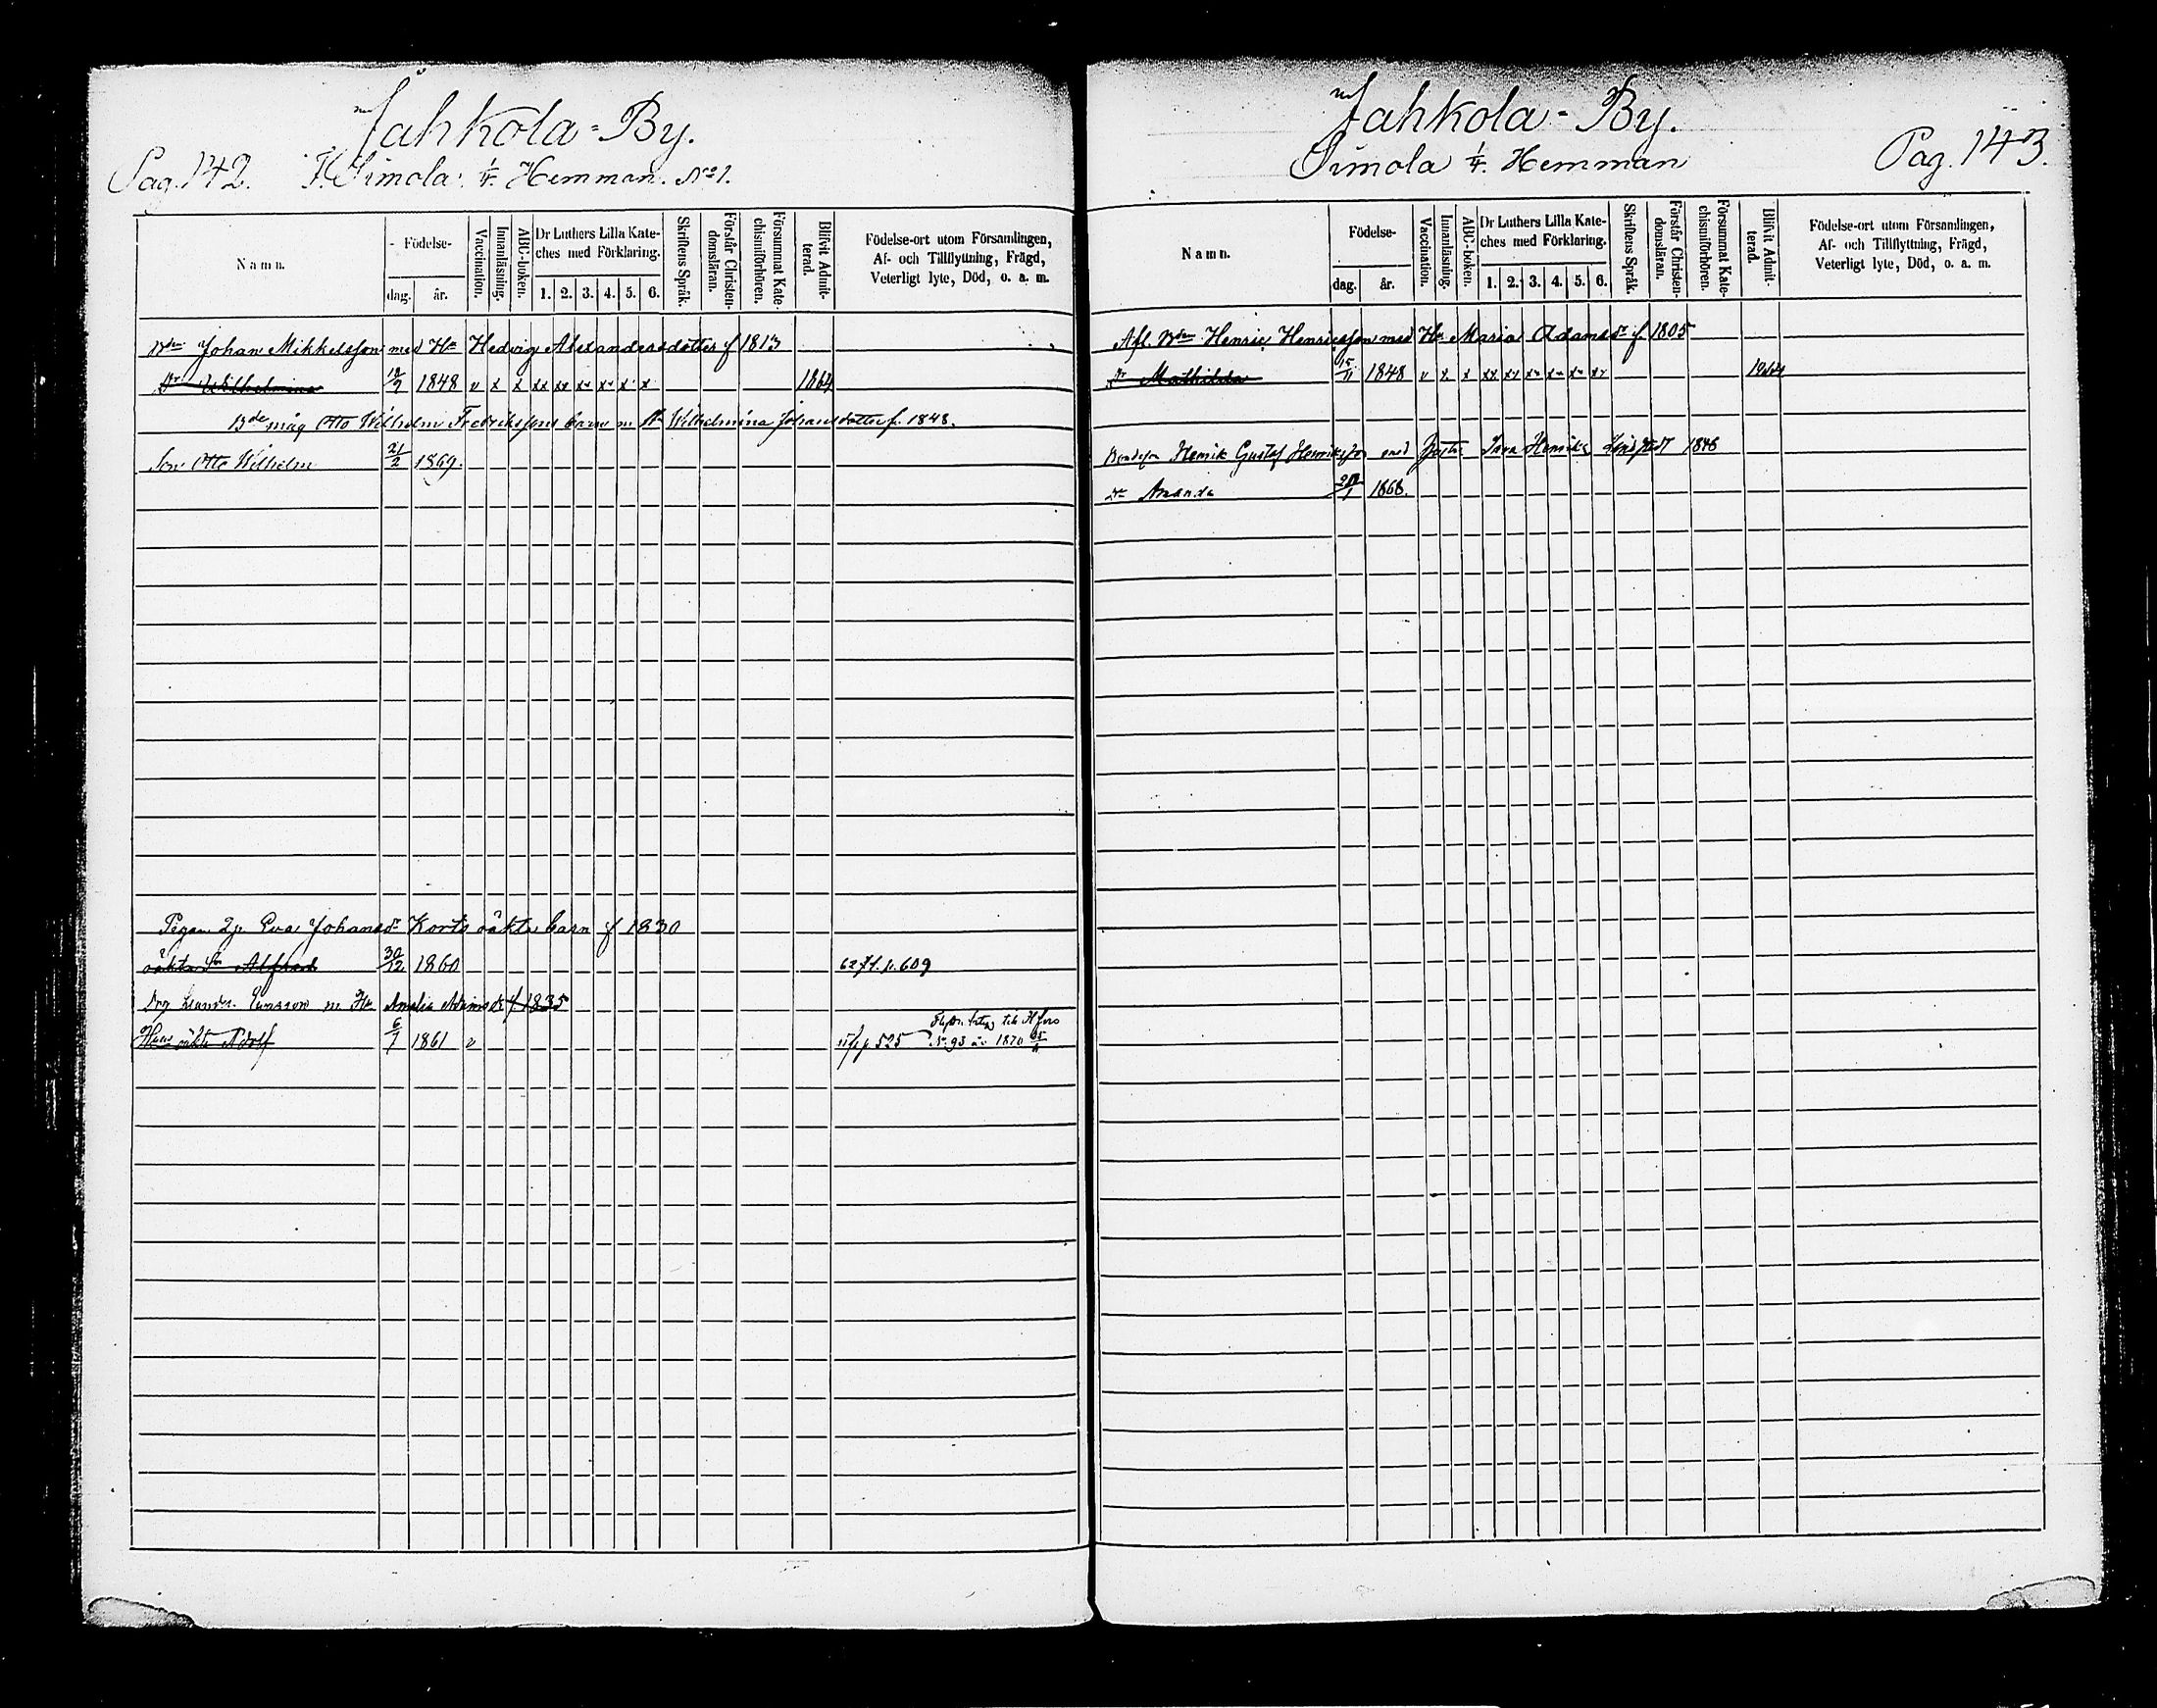 Jahkola=By.
Pag. 142. Simola 1/4 Hemman. No 1.
Namn.
Födelse-
dag.
år.
Vaccination.
Innanläsning.
ABC-boken.
Dr Luthers Lilla Kate-
ches med Förklaring.
1. 2. 3. 4. 5. 6.
Skriftens Språk.
Förstår Christen-
domsläran.
Försummat Kate-
chismiförhören.
Blifvit Admit-
terad.
Födelse-ort utom Församlingen,
Af- och Tillflyttning, Frägd,
Veterligt lyte, Död, o. a. m.
Bdn Johan Mikkelsson med Hu Hedvig Alexandersdotter f 1813
Dr Wilhelmina 12/9 1848 v x x xx xx xx xx x x 1864
Bde måg Otto Wilhelm Fredrikssons barn m Wilhelmina Johansdotter f. 1848.
Son Otto Wilhelm 21/2 1869.
Pigan Eva Johansdr Korts oäkta barn f 1830
oäkta Son Alfred 30/12 1860 p. 609
m. Hu Amalia f. 1835
oäkta Adolf 6/7 1861 v 525 No 93 år 1870
Jahkola=By.
Simola 1/4 Hemman
Pag. 143.
Namn.
Födelse-
dag.
år.
Vaccination.
Innanläsning.
ABC-boken.
Dr Luthers Lilla Kate-
ches med Förklaring.
1. 2. 3. 4. 5. 6.
Skriftens Språk.
Förstår Christen-
domsläran.
Försummat Kate-
chismiförhören.
Blifvit Admit-
terad.
Födelse-ort utom Församlingen,
Af- och Tillflyttning, Frägd,
Veterligt lyte, Död, o. a. m.
Afl. Bdn Henric Henricsson med Hu Maria Adamsdr f. 1805
Dr Mathilda 15/11 1848 v x x xx xx xx xx xx xx 1864
Bondeson Henrik Gustaf Henriksson med Henrika 1846
Dr Amanda 1868.